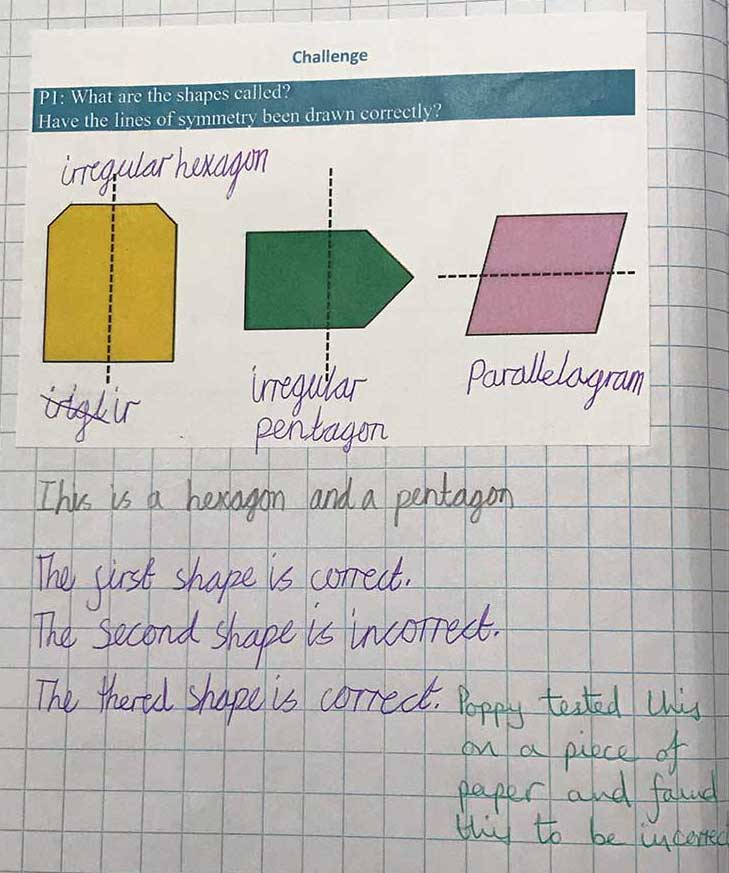 Challenge
P1: What are the shapes called?
Have the lines of symmetry been drawn correctly?
irregular hexagon
ir
irregular
pentagon
Parallelagram
This is a hexagon and a pentagon
The first shape is correct.
The second shape is incorrect.
The thered shape is correct.
Poppy tested this
on a piece of
paper and found
this to be incorrect